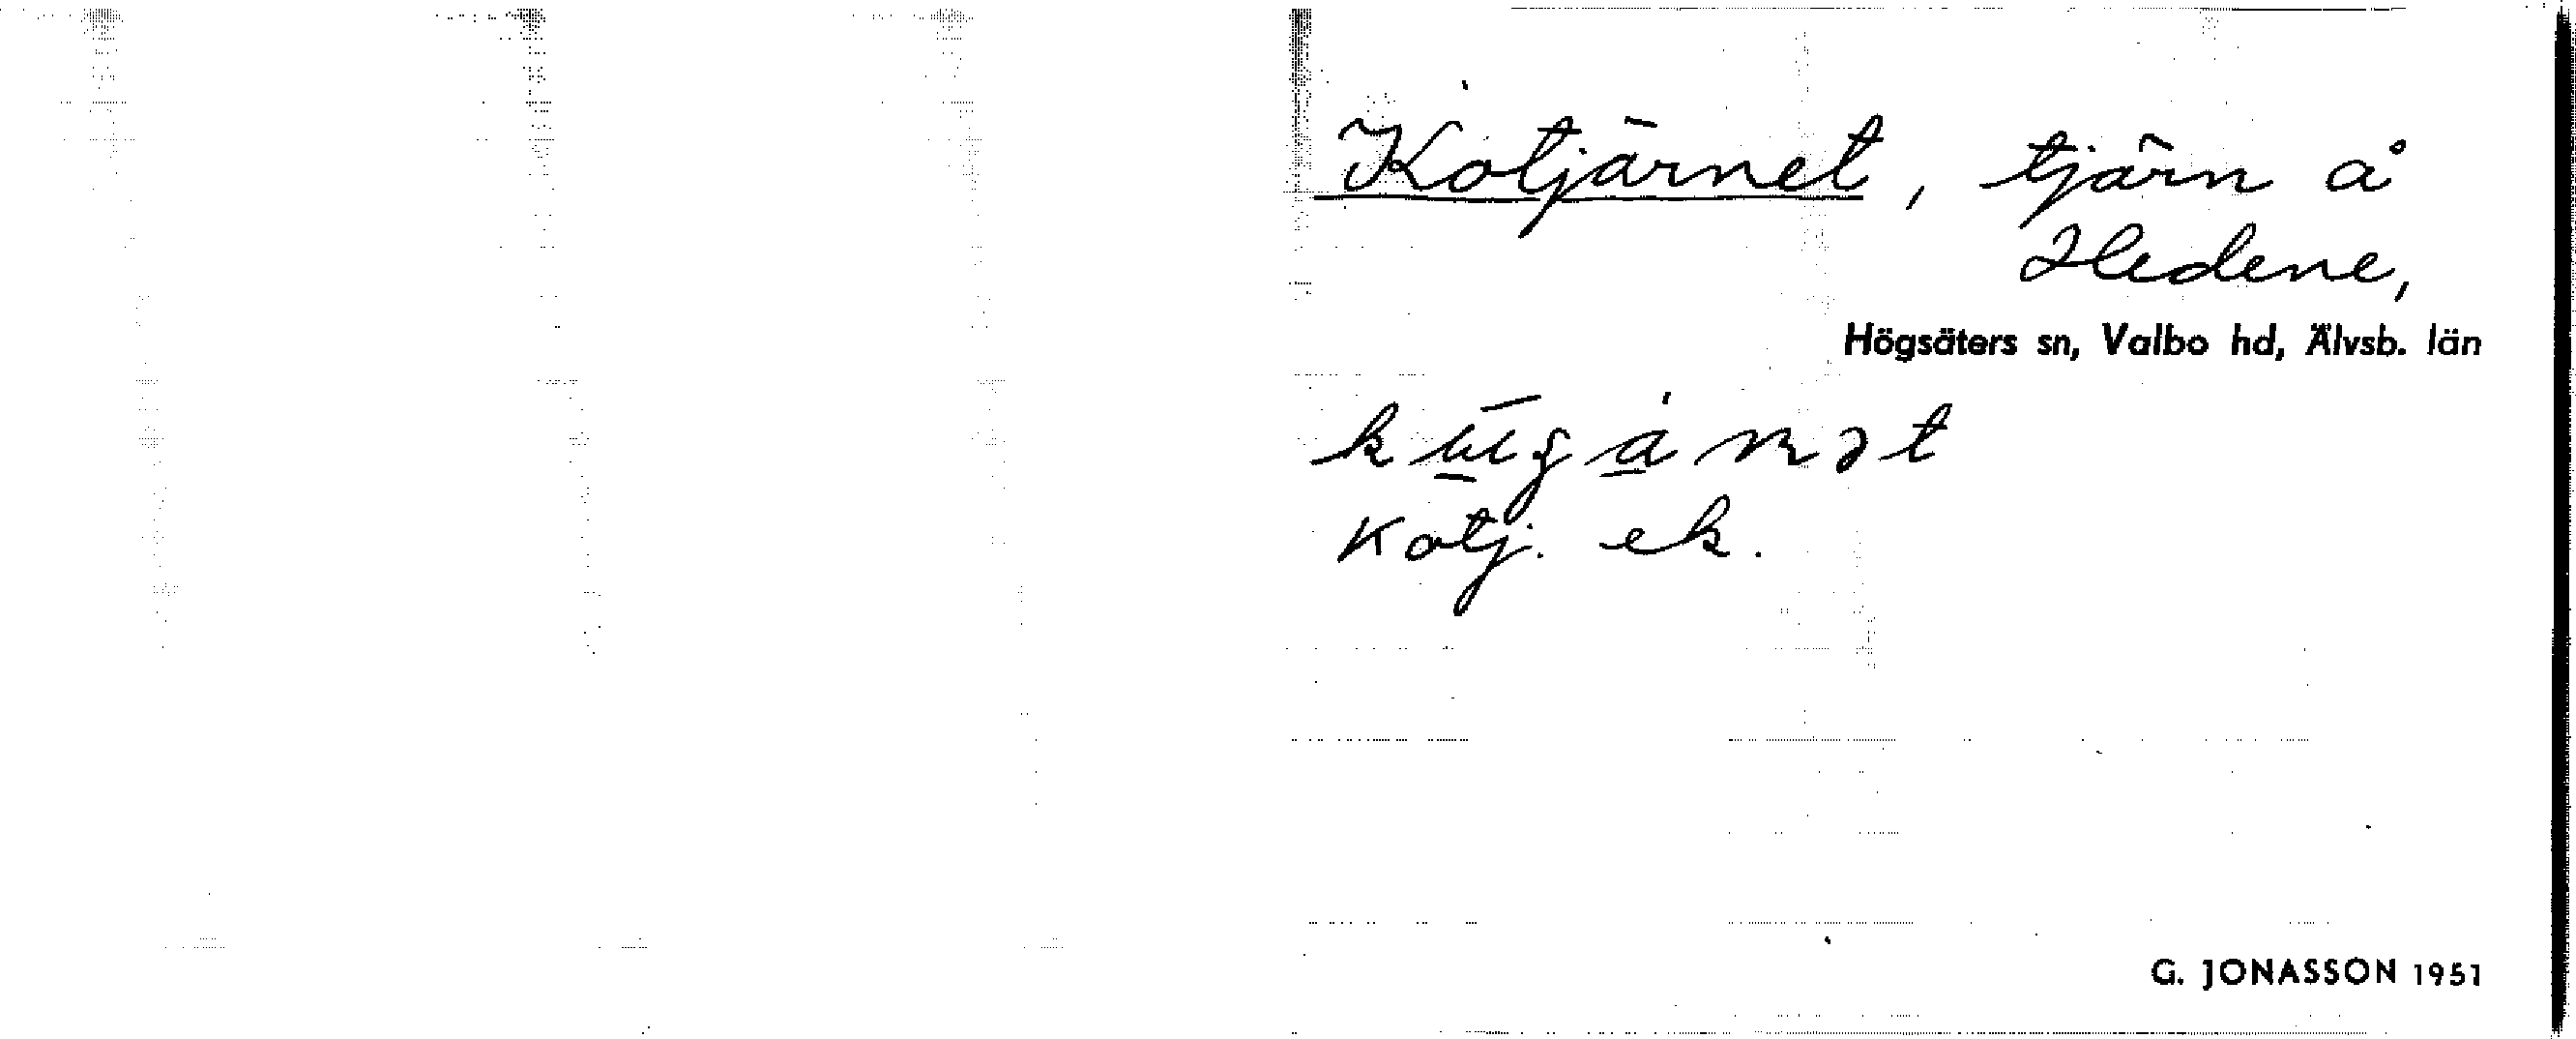 Kotjärnet, tjärn å
Hedene,
Högsäters sn, Valbo hd, Älvsb. län
Kotj. ek.
G. JONASSON 1951